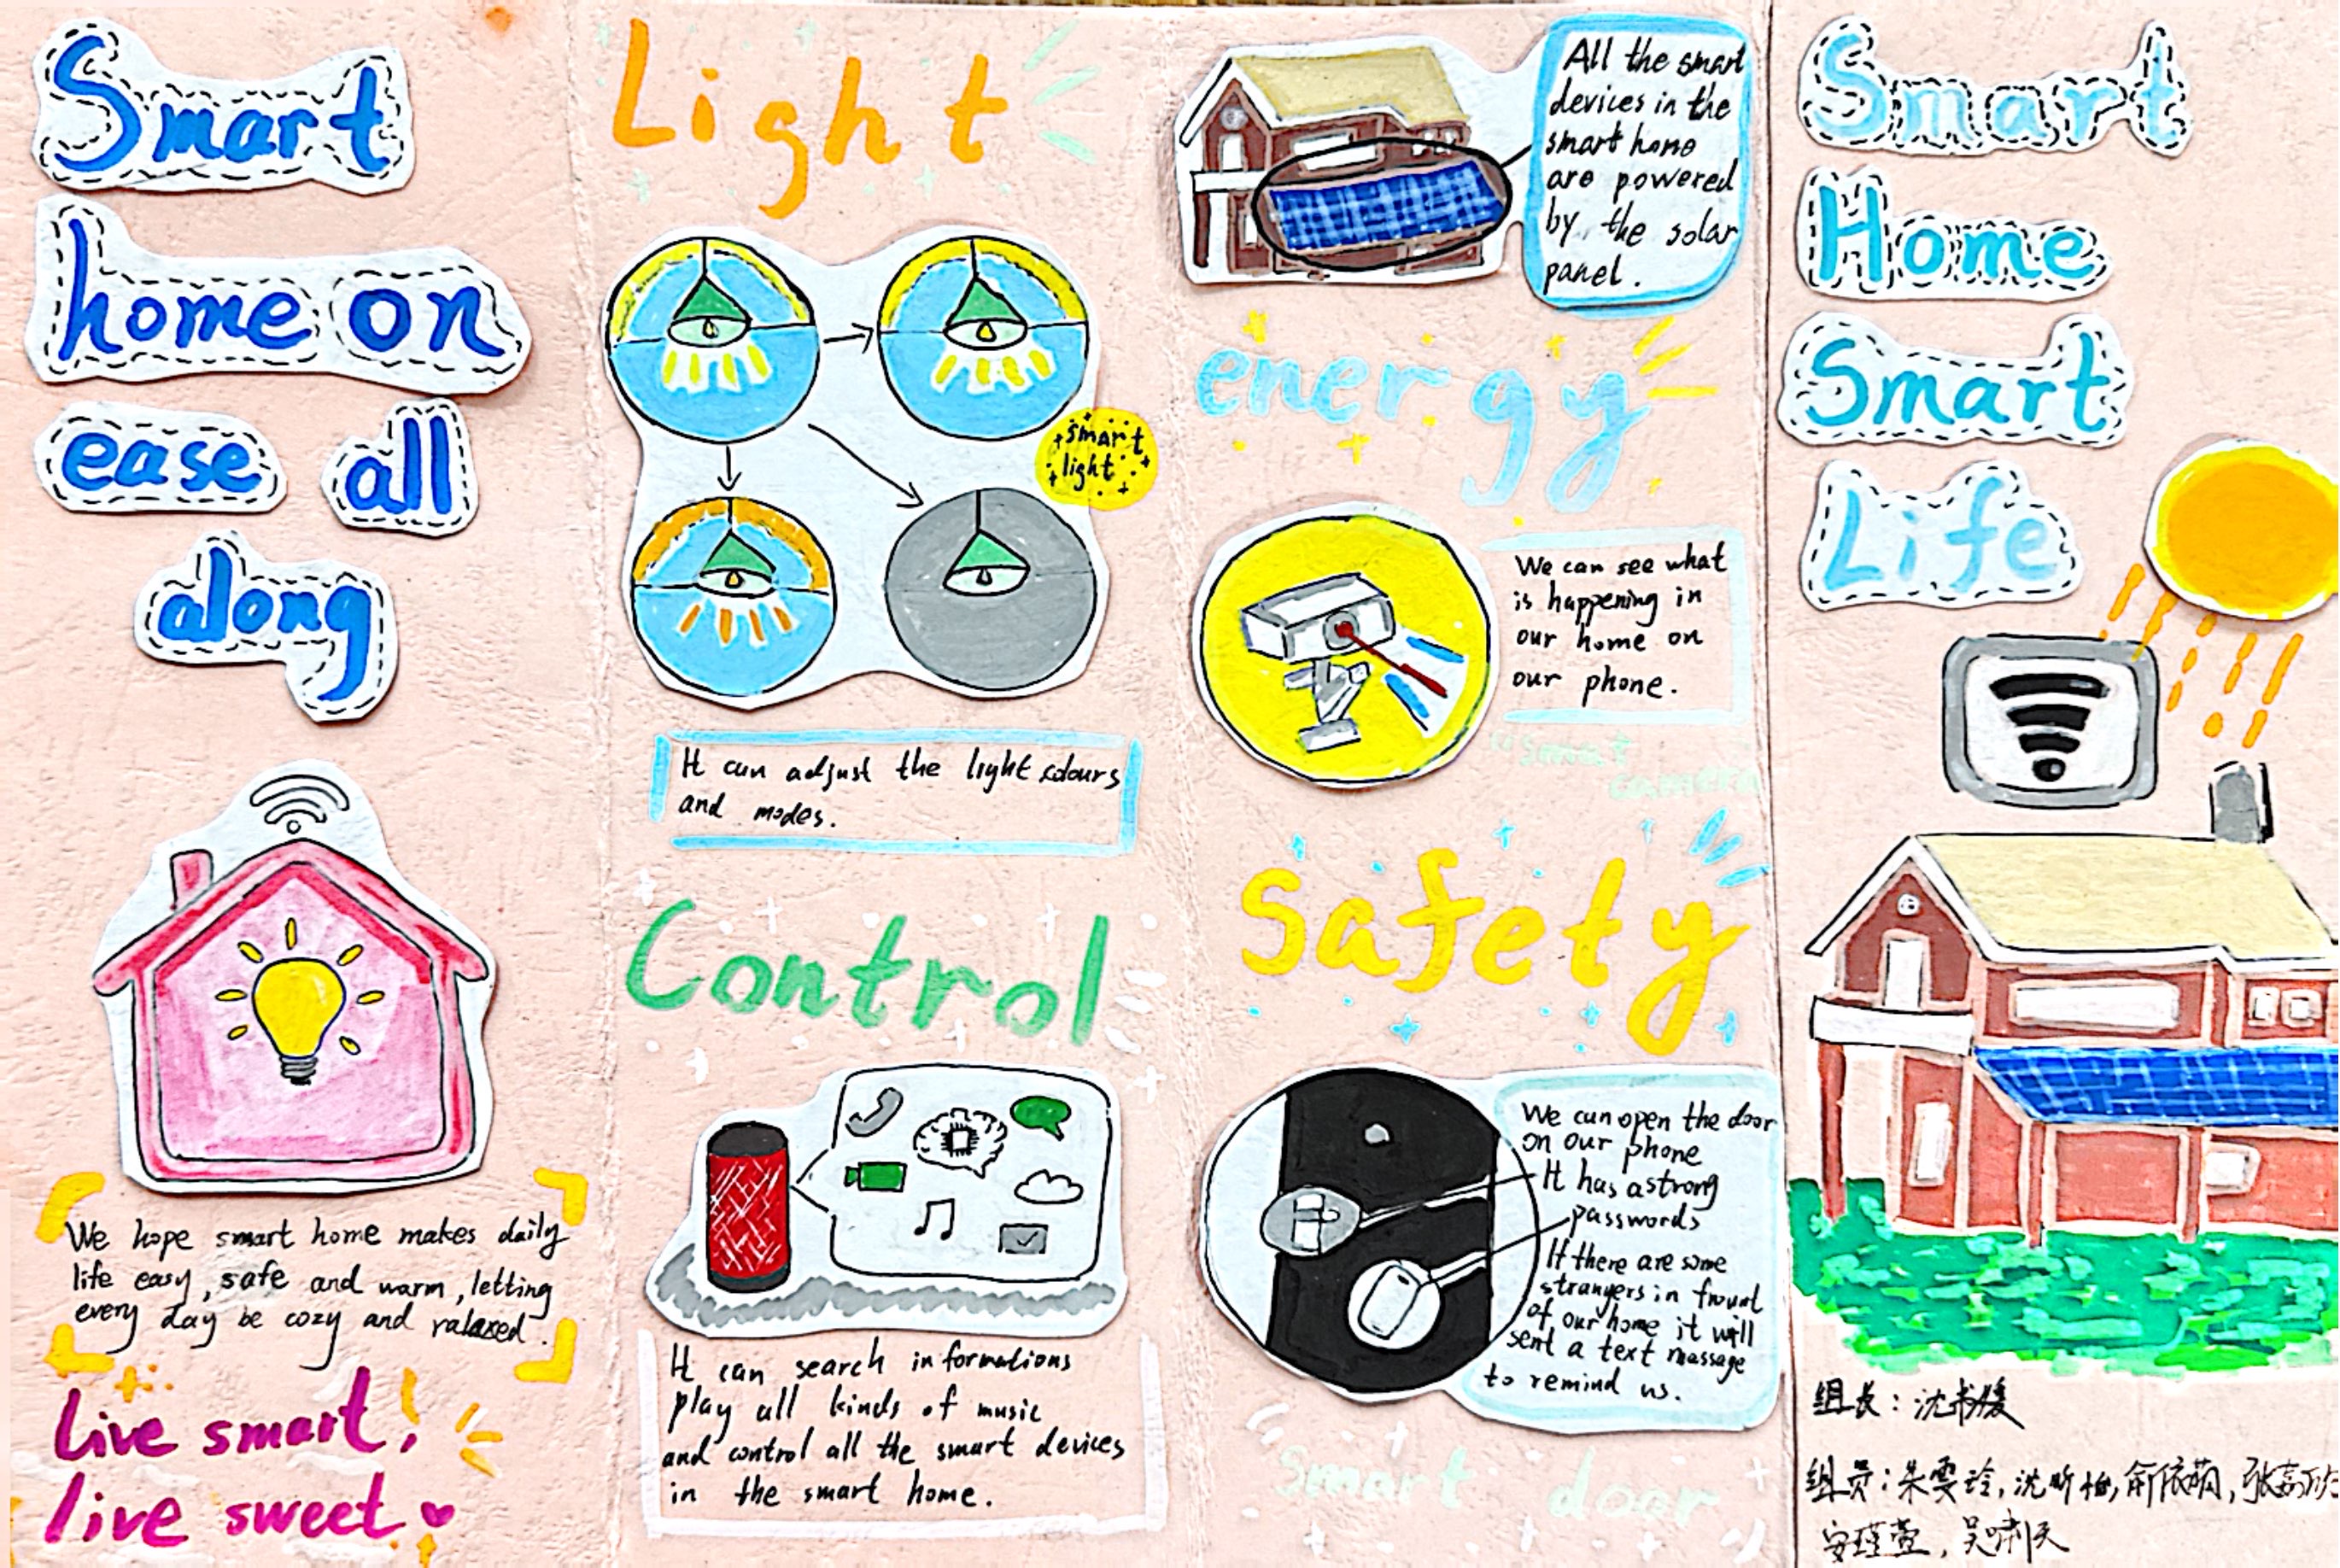 Smart
home on
ease all
along
We hope smart home makes daily
life easy, safe and warm, letting
every day be cozy and ralaxed.
Live smart!
live sweet
Light
smart
light
It can adjust the light colours
and modes.
Control
It can search informations
play all kinds of music
and control all the smart devices
in the smart home.
All the smart
devices in the
smart home
are powered
by the solar
panel.
energy
We can see what
is happening in
our home on
our phone.
smart
camera
Safety
We can open the door
on our phone
It has a strong
passwords
If there are some
strangers in
of our home it will
sent a text massage
to remind us.
Smart door
Smart
Home
Smart
Life
组长：沈书媛
组员：朱雯玲，沈昕怡，俞依萌，张
安瑾萱，吴啸天